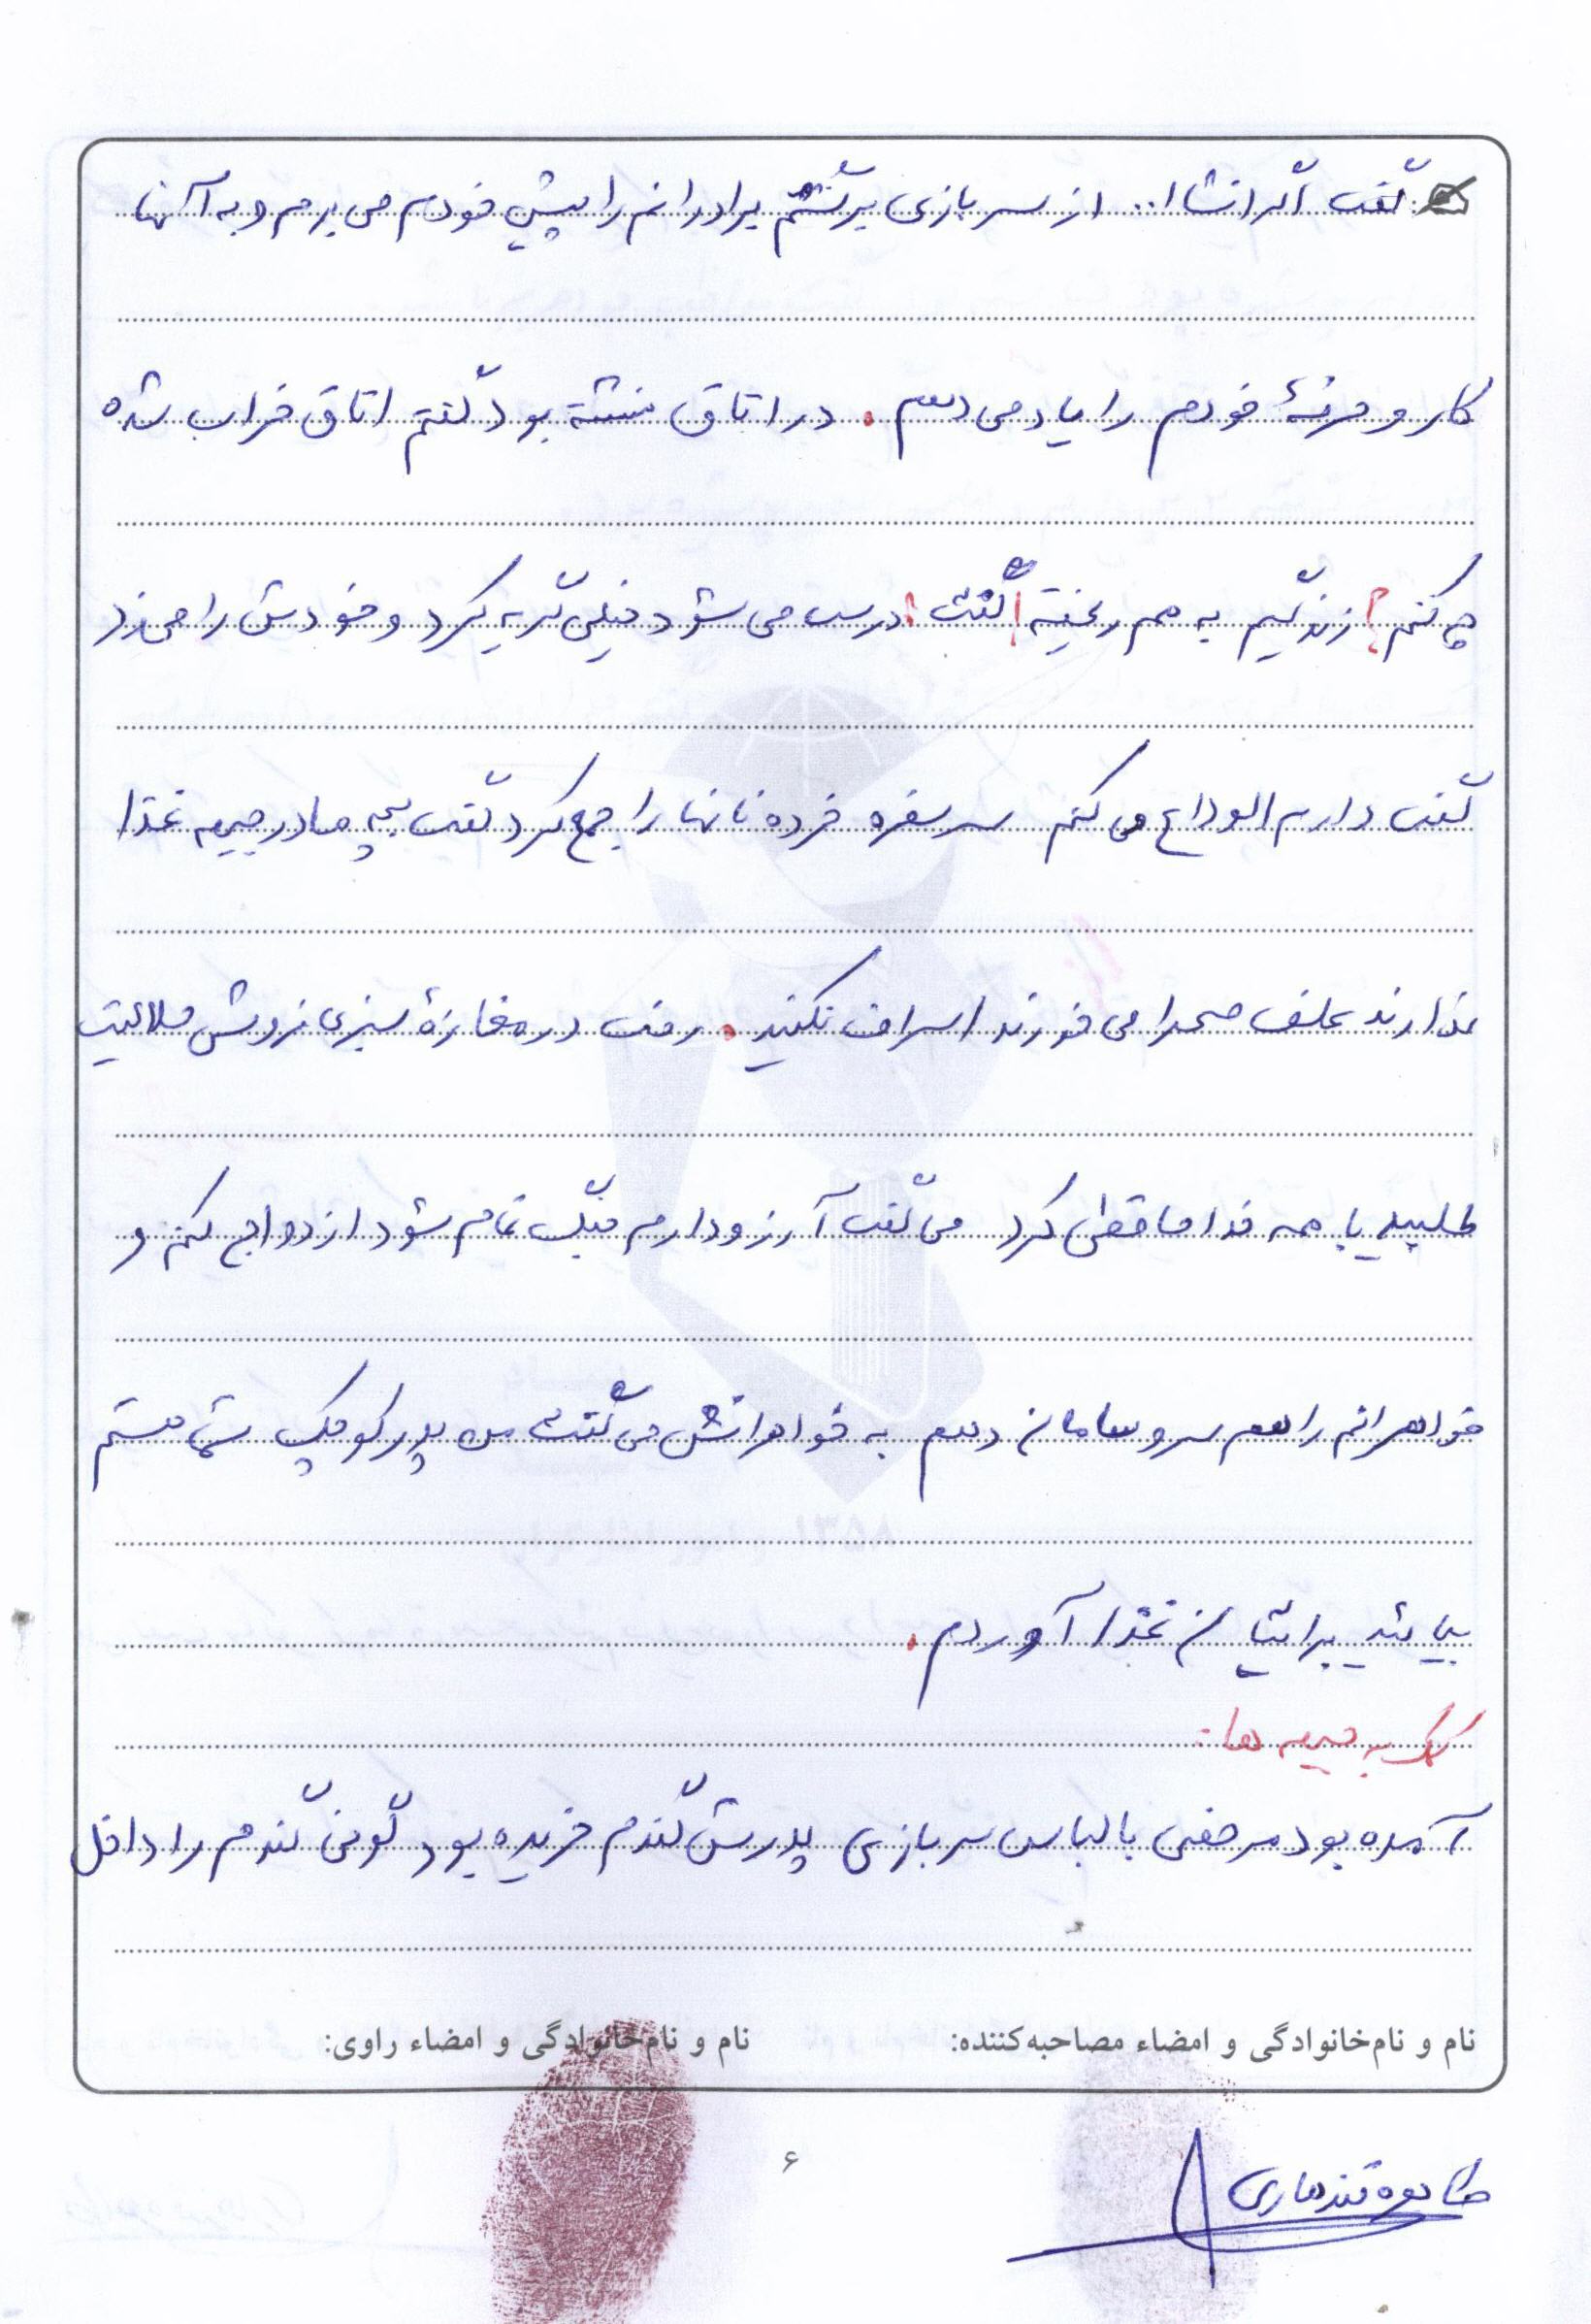 گفت اگر انشاا... از سربازی برگشتم برادرانم را پیش خودم می برم و به آنها
کار و حرفهٔ خودم را یاد می دهم . در اتاق نشسته بود گفتم اتاق خراب شده
چه کنم؟ زندگیم به هم ریخته! گفت: درست می شود خیلی گریه کرد و خودش را می زد
گفت دارم الوداع می کنم سر سفره خرده نانها را جمع کرد گفت بچه ها در جبهه غذا
ندارند علف صحرا می خورند اسراف نکنید . رفت در مغازهٔ سبزی فروش حلالیت
طلبید با همه خداحافظی کرد می گفت آرزو دارم جنگ تمام شود ازدواج کنم و
خواهرانم را هم سر و سامان دهم به خواهرانش می گفت من پدر کوچک شما هستم
بیائید برایتان غذا آوردم .
کمک به جبهه ها:
آمده بود مرخصی با لباس سربازی پدرش گندم خریده بود گونی گندم را داخل
نام و نام‌خانوادگی و امضاء مصاحبه‌کننده: نام و نام‌خانوادگی و امضاء راوی:
طاهره قندهاری
۶
۱۳۵۸